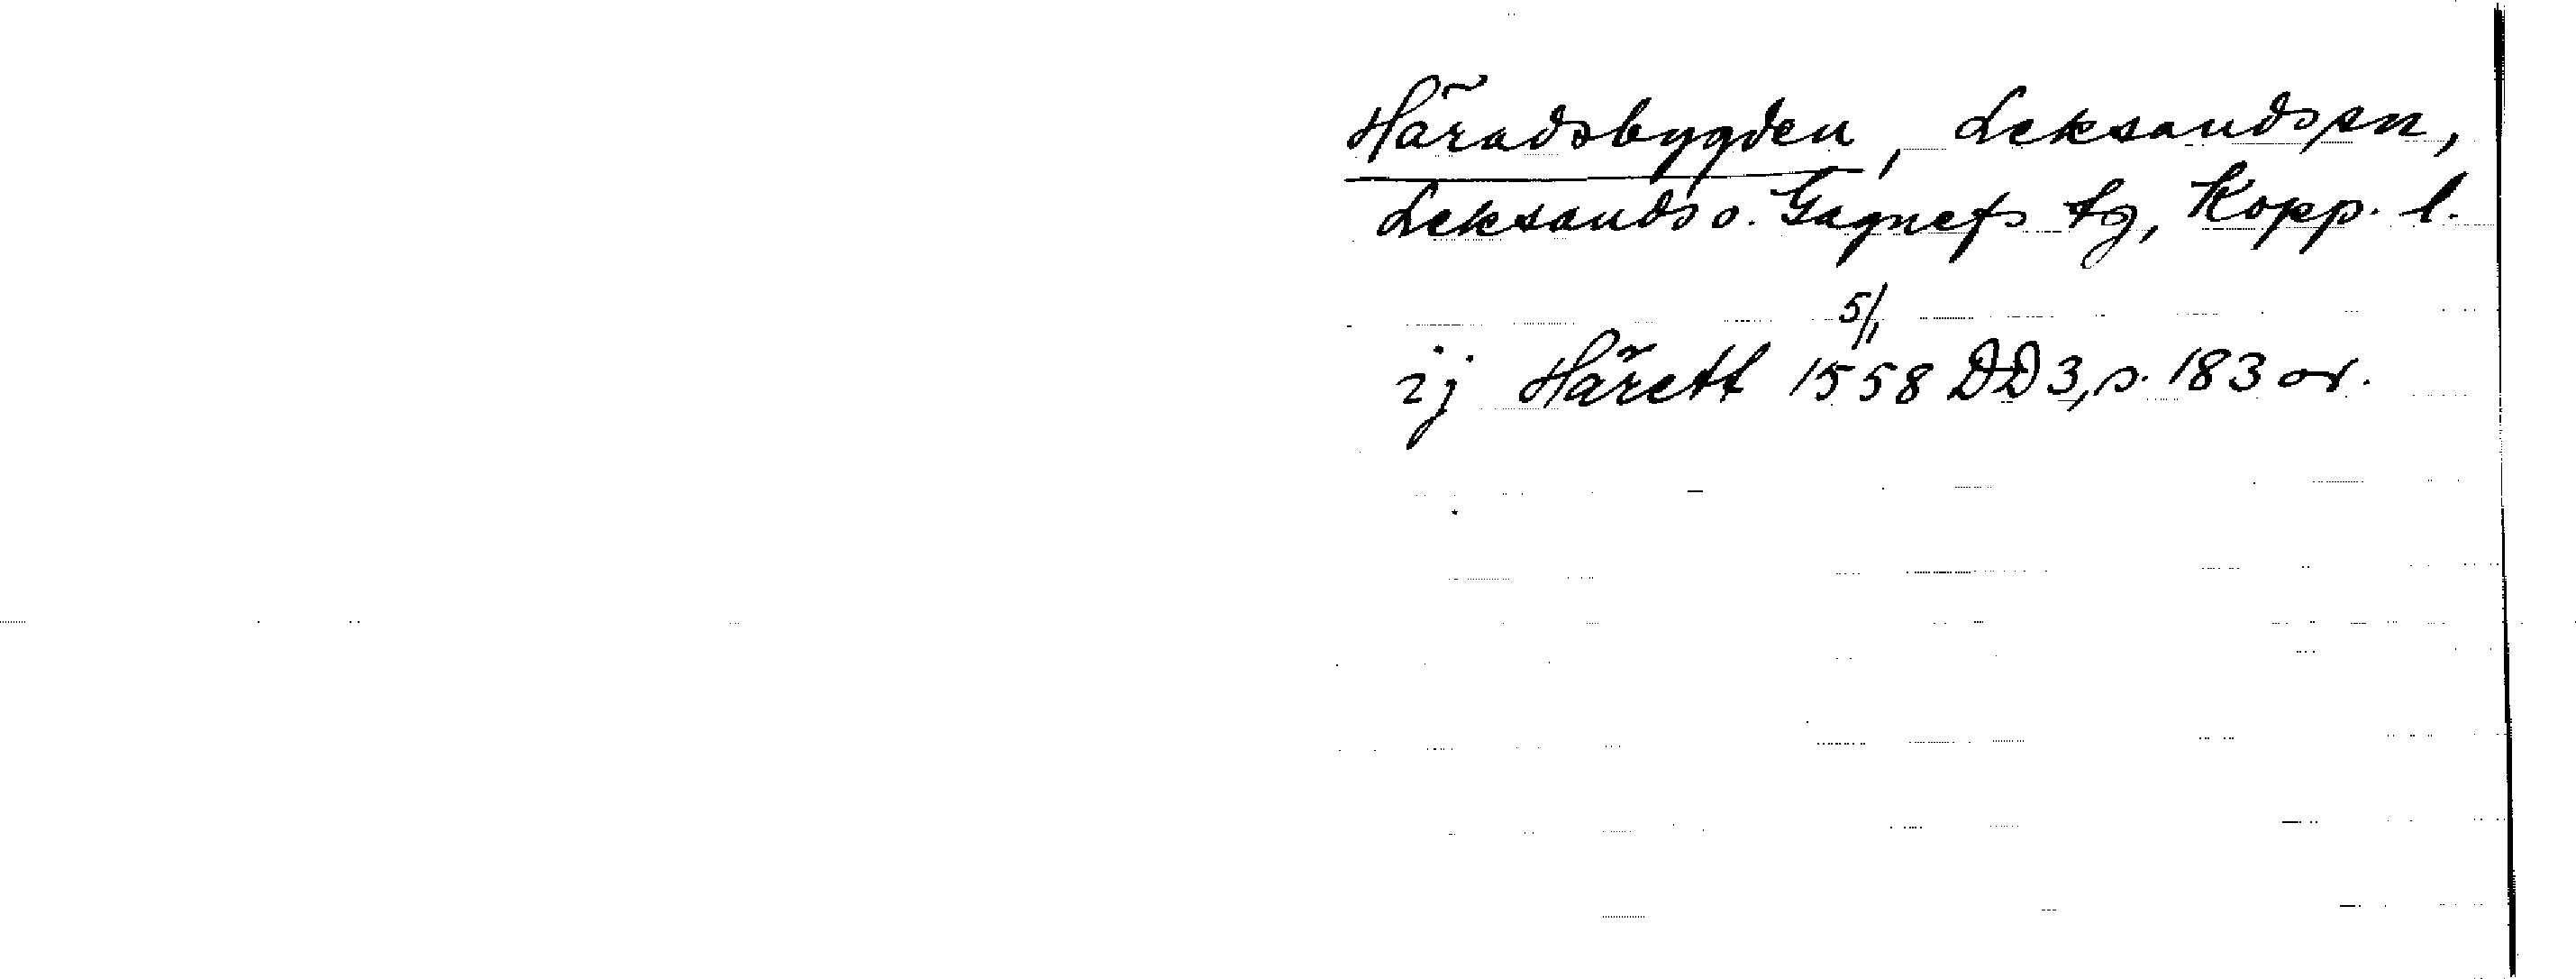 Häradsbygden, Leksands sn,
Leksands o. Gagnefs tg, Kopp. l.
5/1
ij Härett 1558 DD3, s. 183 or.